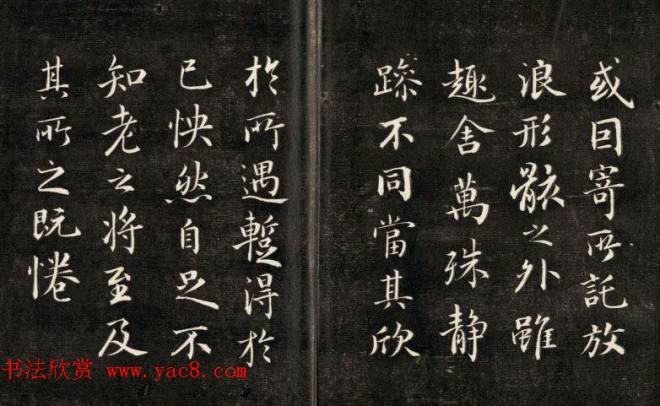 或因寄所託放
浪形骸之外雖
趣舍萬殊静
躁不同當其欣
於所遇蹔得於
己怏然自足不
知老之将至及
其所之既惓
书法欣赏 www.yac8.com